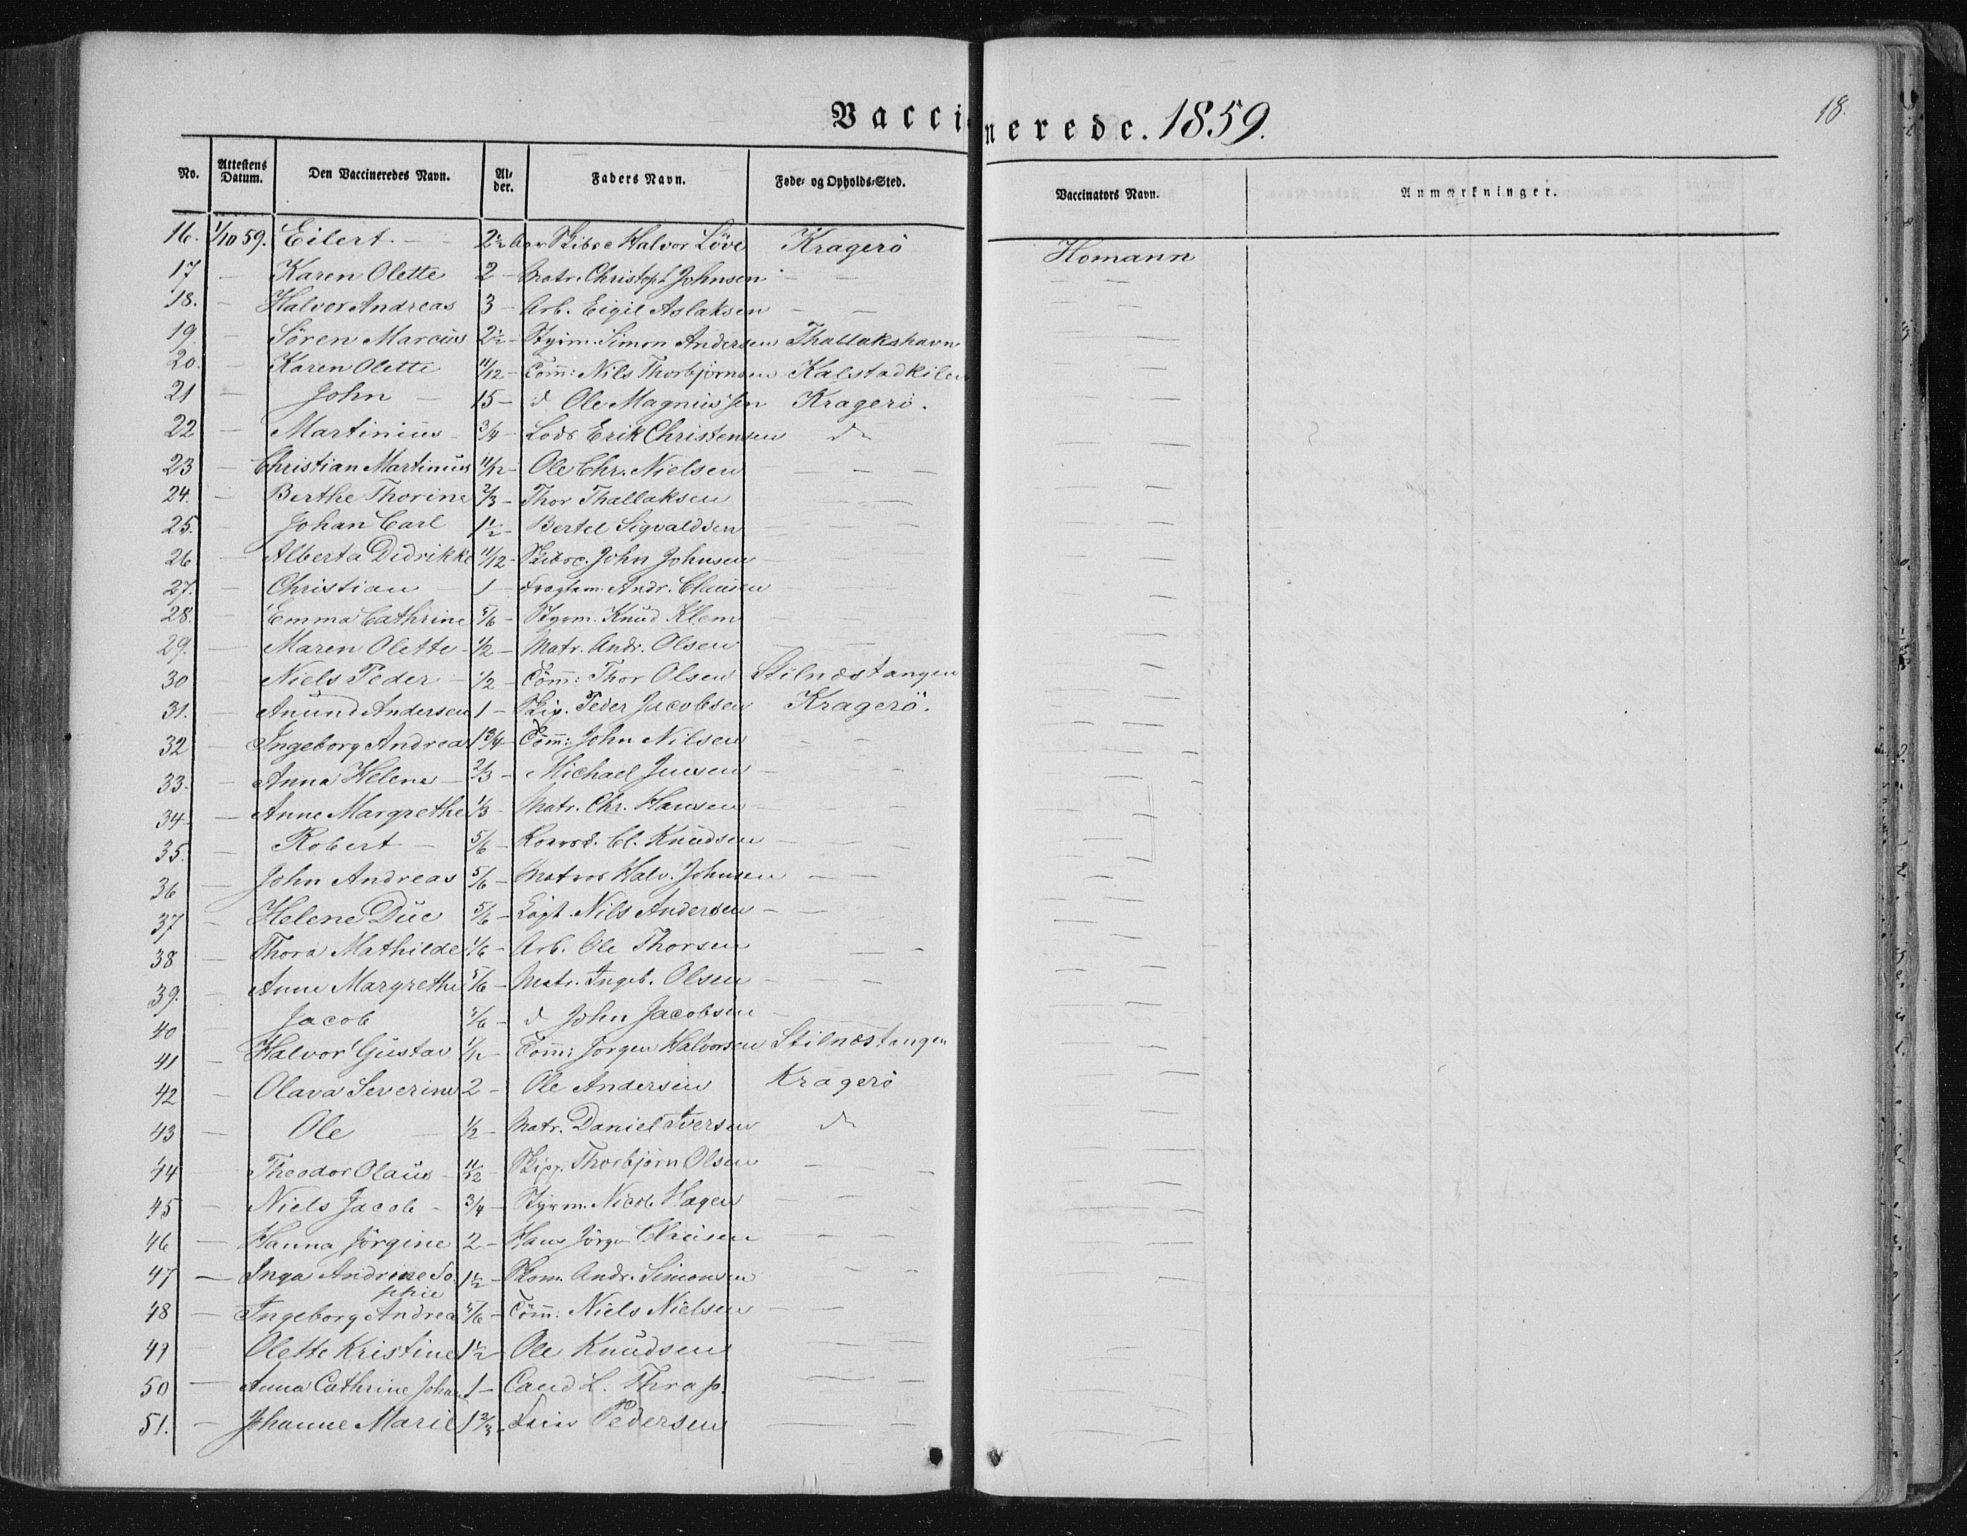 Vaccinerede. 1859.
18.
No. Attestens Datum. Den Vaccineredes Navn. Alder. Faders Navn. Føde- og Opholds-Sted. Vaccinators Navn. Anmærkninger.
16. 1/10 59. Eilert. — 2½ Halvor Löve Kragerö Homann
17 — Karen Olette 2 — Matr. Christoph Johnsen — —
18. — Halvor Andreas 3 — Arb. Eigil Aslaksen — —
19. — Sören Marcus 2½ — Styrm. Simon Andersen Thallakshavn
20. — Karen Olette 11/12 — Töm: Nils Thorbjörnsen Kalstadkilen
21 — John — 15 — d Ole Magnussen Kragerö.
22 — Martinius — 3/4 — Lods Erik Christensen do
23 — Christian Martinus 11/12 — Ole Chr. Nielsen — —
24. — Berthe Thorine 2/3 — Thor Thallaksen — —
25. — Johan Carl 1½ — Bertel Sigvaldsen — —
26 — Alberta Didrikke 11/12 — Skibsc. John Johnsen — —
27. — Christian — 1 — Andr. Clausen — —
28. — Emma Cathrine 5/6 — Styrm. Knud Klem — —
29. — Maren Olette — 1/2 — Matr. Andr. Olsen — —
30 — Niels Peder — 1/2 — Töm: Thor Olsen Stilnæstangen
31. — Anund Andersen 1 — Skip. Peder Jacobsen Kragerö.
32 — Ingeborg Andrea 1 3/4 — Töm: John Nilsen — —
33. — Anna Helene — 2/3 — Michael Jensen — —
34 — Anne Margrethe 1/3 — Matr. Chr. Hansen — —
35. — Robert — 5/6 — Cl. Knudsen — —
36 — John Andreas 5/6 — Matros Halv. Johnsen — —
37 — Helene Due 5/6 — Nils Andersen — —
38 — Thora Mathilde 1/6 — Arb. Ole Thorsen — —
39. — Anne Margrethe 5/6 — Matr. Ingeb. Olsen — —
40 — Jacob 5/6 — d John Jacobsen — —
41 — Halvor Gustav Töm: Jörgen Halvorsen Stilnæstangen
42 — Olava Severine 2 — Ole Andersen Kragerö
43 — Ole — 1/2 — Matr. Daniel Iversen do
44 — Theodor Olaus — 11/12 — Skipp. Thorbjörn Olsen — —
45 — Niels Jacob — 3/4 — Styrm. Nicol. Hagen — —
46 — Hanna Jörgine 2 — Hans Jörgen Clausen — —
47 — Inga Andrine So- 1½ — Skom. Andr. Simonsen — —
phie
48 — Ingeborg Andrea 5/6 — Töm: Niels Nielsen — —
49 — Olette Kristine 1½ — Ole Knudsen — —
50 — Anna Cathrine Johan 1 — Cand. L. Thrap. — —
51. — Johanne Marie 1 2/3 — Pedersen — —